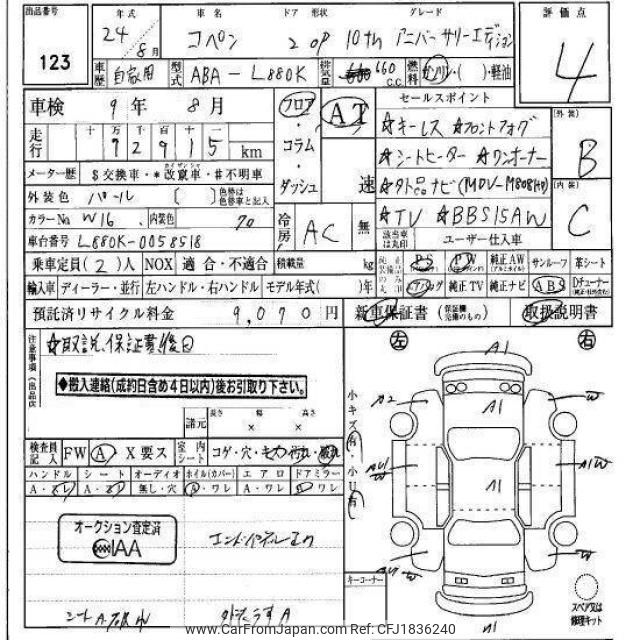 出品番号 年式 車名 ドア 形状 グレード 評価点
123 24/8月 コペン 2 OP 10th アニバーサリーエディション 4
車歴 自家用 型式 ABA-L880K 排気量 660 c.c. 燃料 ガソリン・( )・軽油
車検 9年 8月 フロア・コラム・ダッシュ AT 速
セールスポイント
走行 十 万 千 百 十 一
72915 km
☆キーレス ☆フロントフォグ
☆シートヒーター ☆ワンオーナー
☆社外品ナビ(MDV-M808HD)
☆TV ☆BBS15AW
外装 B
内装 C
メーター歴 $交換車・*改竄車・#不明車
カイザンシャ
外装色 パール ( ) 色替は色替車と記入
カラーNo W16 内装色 70
冷房 AC 無
該当車は丸印 ユーザー仕入車
車台番号 L880K-0058518
乗車定員(2)人 NOX 適合・不適合 積載量 kg
純正装備品のみ印 PS PW 純正AW サンルーフ 革シート
輸入車 ディーラー・並行 左ハンドル・右ハンドル モデル年式( )年
エアバッグ 純正TV 純正ナビ ABS Dチューナー
預託済リサイクル料金 9,070円 新車保証書(保証機 完備のもの) 取扱説明書
注意事項(出品店)
☆取説、保証書後日
◆搬入連絡(成約日含め4日以内)後お引取り下さい。
諸元 長さ 幅 高さ
× ×
検査員記入 FW A X要ス 室内シート コゲ・穴・キズ 汚れ・擦れ
ハンドル シート オーディオ ホイル(カバー) エアロ ドアミラー
A・スレ A・スレ 無し・穴 A・ワレ A・ワレ A・ワレ
オークション査定済
IAA
エンドパネル
シートA
左 右
小キズ有・小U有
A1
A2 A1 W
AU W A1 A1W
W
AW W
A1
キーコーナー
スペア又は修理キット
www.CarFromJapan.com REF:CFJ1836240